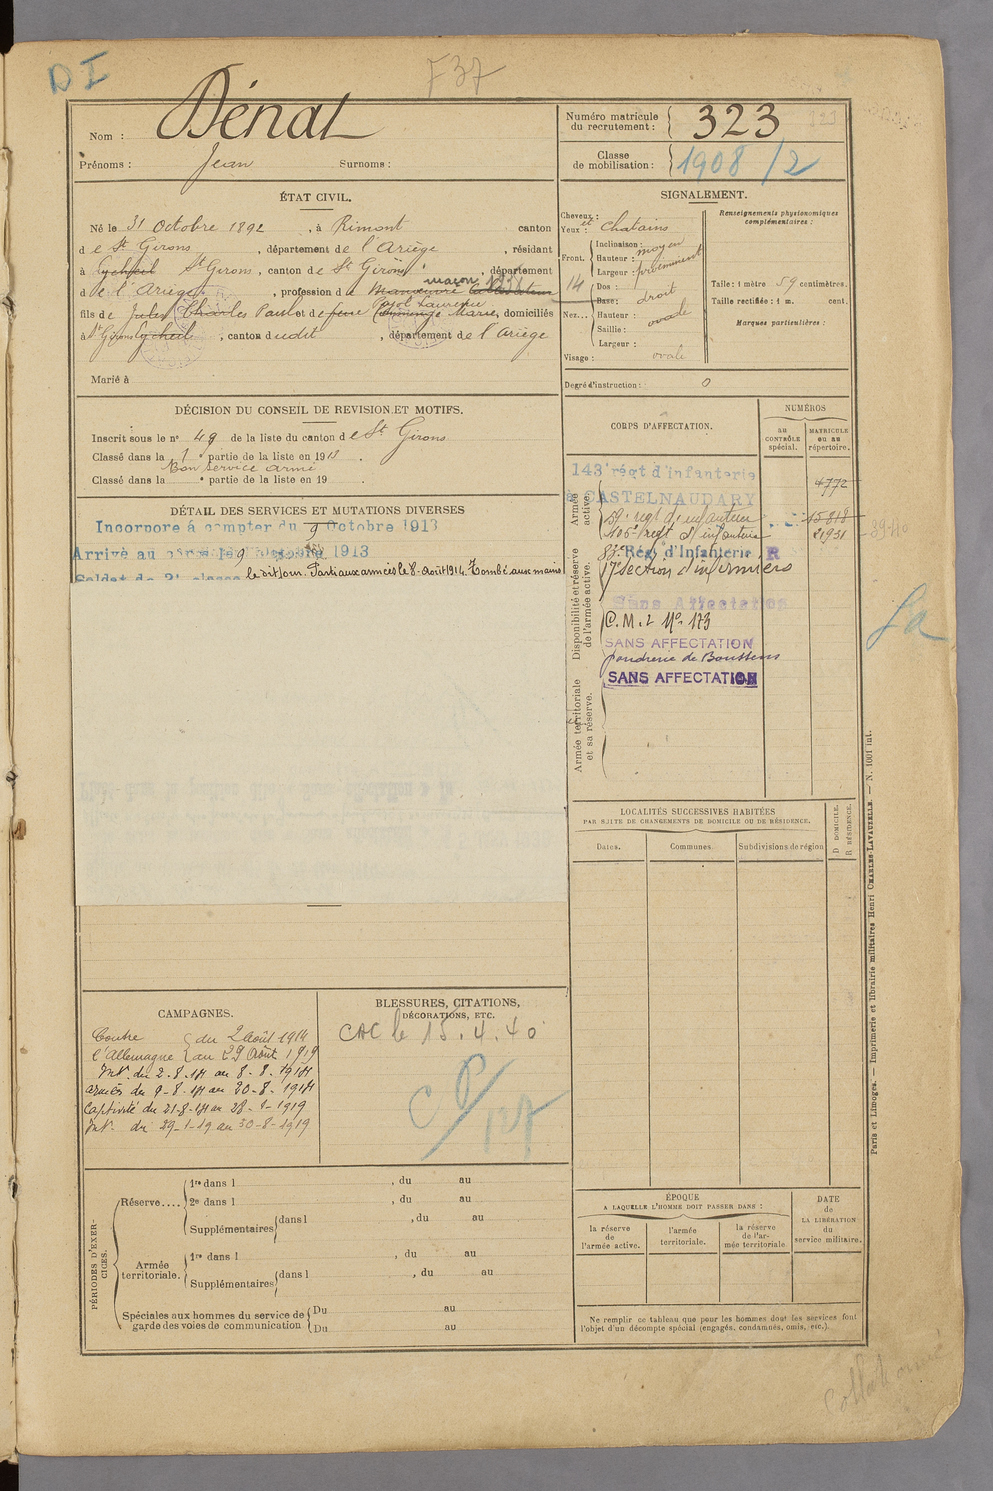 D I
F37
Nom : Dénat
Prénoms : Jean Surnoms :
Numéro matricule du recrutement : 323
Classe de mobilisation : 1908 /2
ÉTAT CIVIL.
Né le 31 Octobre 1892, à Rimont canton
de St Girons, département de l'Ariège, résidant
à St Girons, canton de St Girons, département
de l'Ariège, profession de Manœuvre maçon
fils de Jules Charles Paul et de Pujol Laurence Marie, domiciliés
à St Girons, canton dudit, département de l'Ariège
Marié à
SIGNALEMENT.
Cheveux :
Yeux : et Chatains
Front. Inclinaison : moyen
Hauteur : proéminent
Largeur :
14
Nez... Dos : droit
Base :
Hauteur : ovale
Saillie :
Largeur :
Visage : ovale
Renseignements physionomiques complémentaires :
Taille : 1 mètre 59 centimètres.
Taille rectifiée : 1 m. cent.
Marques particulières :
Degré d'instruction : 0
DÉCISION DU CONSEIL DE REVISION ET MOTIFS.
Inscrit sous le n° 49 de la liste du canton de St Girons
Classé dans la 1e partie de la liste en 1913.
Bon service armé
Classé dans la e partie de la liste en 19
DÉTAIL DES SERVICES ET MUTATIONS DIVERSES
Incorporé à compter du 9 Octobre 1913
Arrivé au corps le 9 Octobre 1913
Soldat de 2e classe le dit jour. Parti aux armées le 8 Août 1914. Tombé aux mains
CORPS D'AFFECTATION.
NUMÉROS
AU CONTRÔLE spécial.
MATRICULE ou au répertoire.
Armée active.
143e régt d'infanterie
à CASTELNAUDARY
4772
59e régt d'infanterie
15818
21931
39-40
Disponibilité et réserve de l'armée active.
83e Régt d'Infanterie R
17e section d'infirmiers
Sans Affectation
C.M.I No 173
SANS AFFECTATION
Poudrerie de Boussens
SANS AFFECTATION
Armée territoriale et sa réserve.
LOCALITÉS SUCCESSIVES HABITÉES
PAR SUITE DE CHANGEMENTS DE DOMICILE OU DE RÉSIDENCE.
Dates. Communes. Subdivisions de région D. DOMICILE. R. RÉSIDENCE.
CAMPAGNES.
Contre du 2 Août 1914
l'Allemagne au 29 Août 1919
Int. du 2-8-14 au 8-8-1914
armées du 9-8-14 au 20-8-1914
Captivité du 21-8-14 au 28-1-1919
Int. du 29-1-19 au 30-8-1919
BLESSURES, CITATIONS, DÉCORATIONS, ETC.
CAC le 15.4.40
CP/127
PÉRIODES D'EXERCICES.
Réserve.... 1re dans l , du au
2e dans l , du au
Supplémentaires dans l , du au
Armée territoriale. 1re dans l , du au
Supplémentaires dans l , du au
Spéciales aux hommes du service de garde des voies de communication Du au
Du au
ÉPOQUE
A LAQUELLE L'HOMME DOIT PASSER DANS :
la réserve de l'armée active.
l'armée territoriale.
la réserve de l'armée territoriale
DATE de LA LIBÉRATION du service militaire.
Ne remplir ce tableau que pour les hommes dont les services font
l'objet d'un décompte spécial (engagés, condamnés, omis, etc.).
Paris et Limoges. — Imprimerie et librairie militaires Henri CHARLES-LAVAUZELLE. — N. 1001 int.